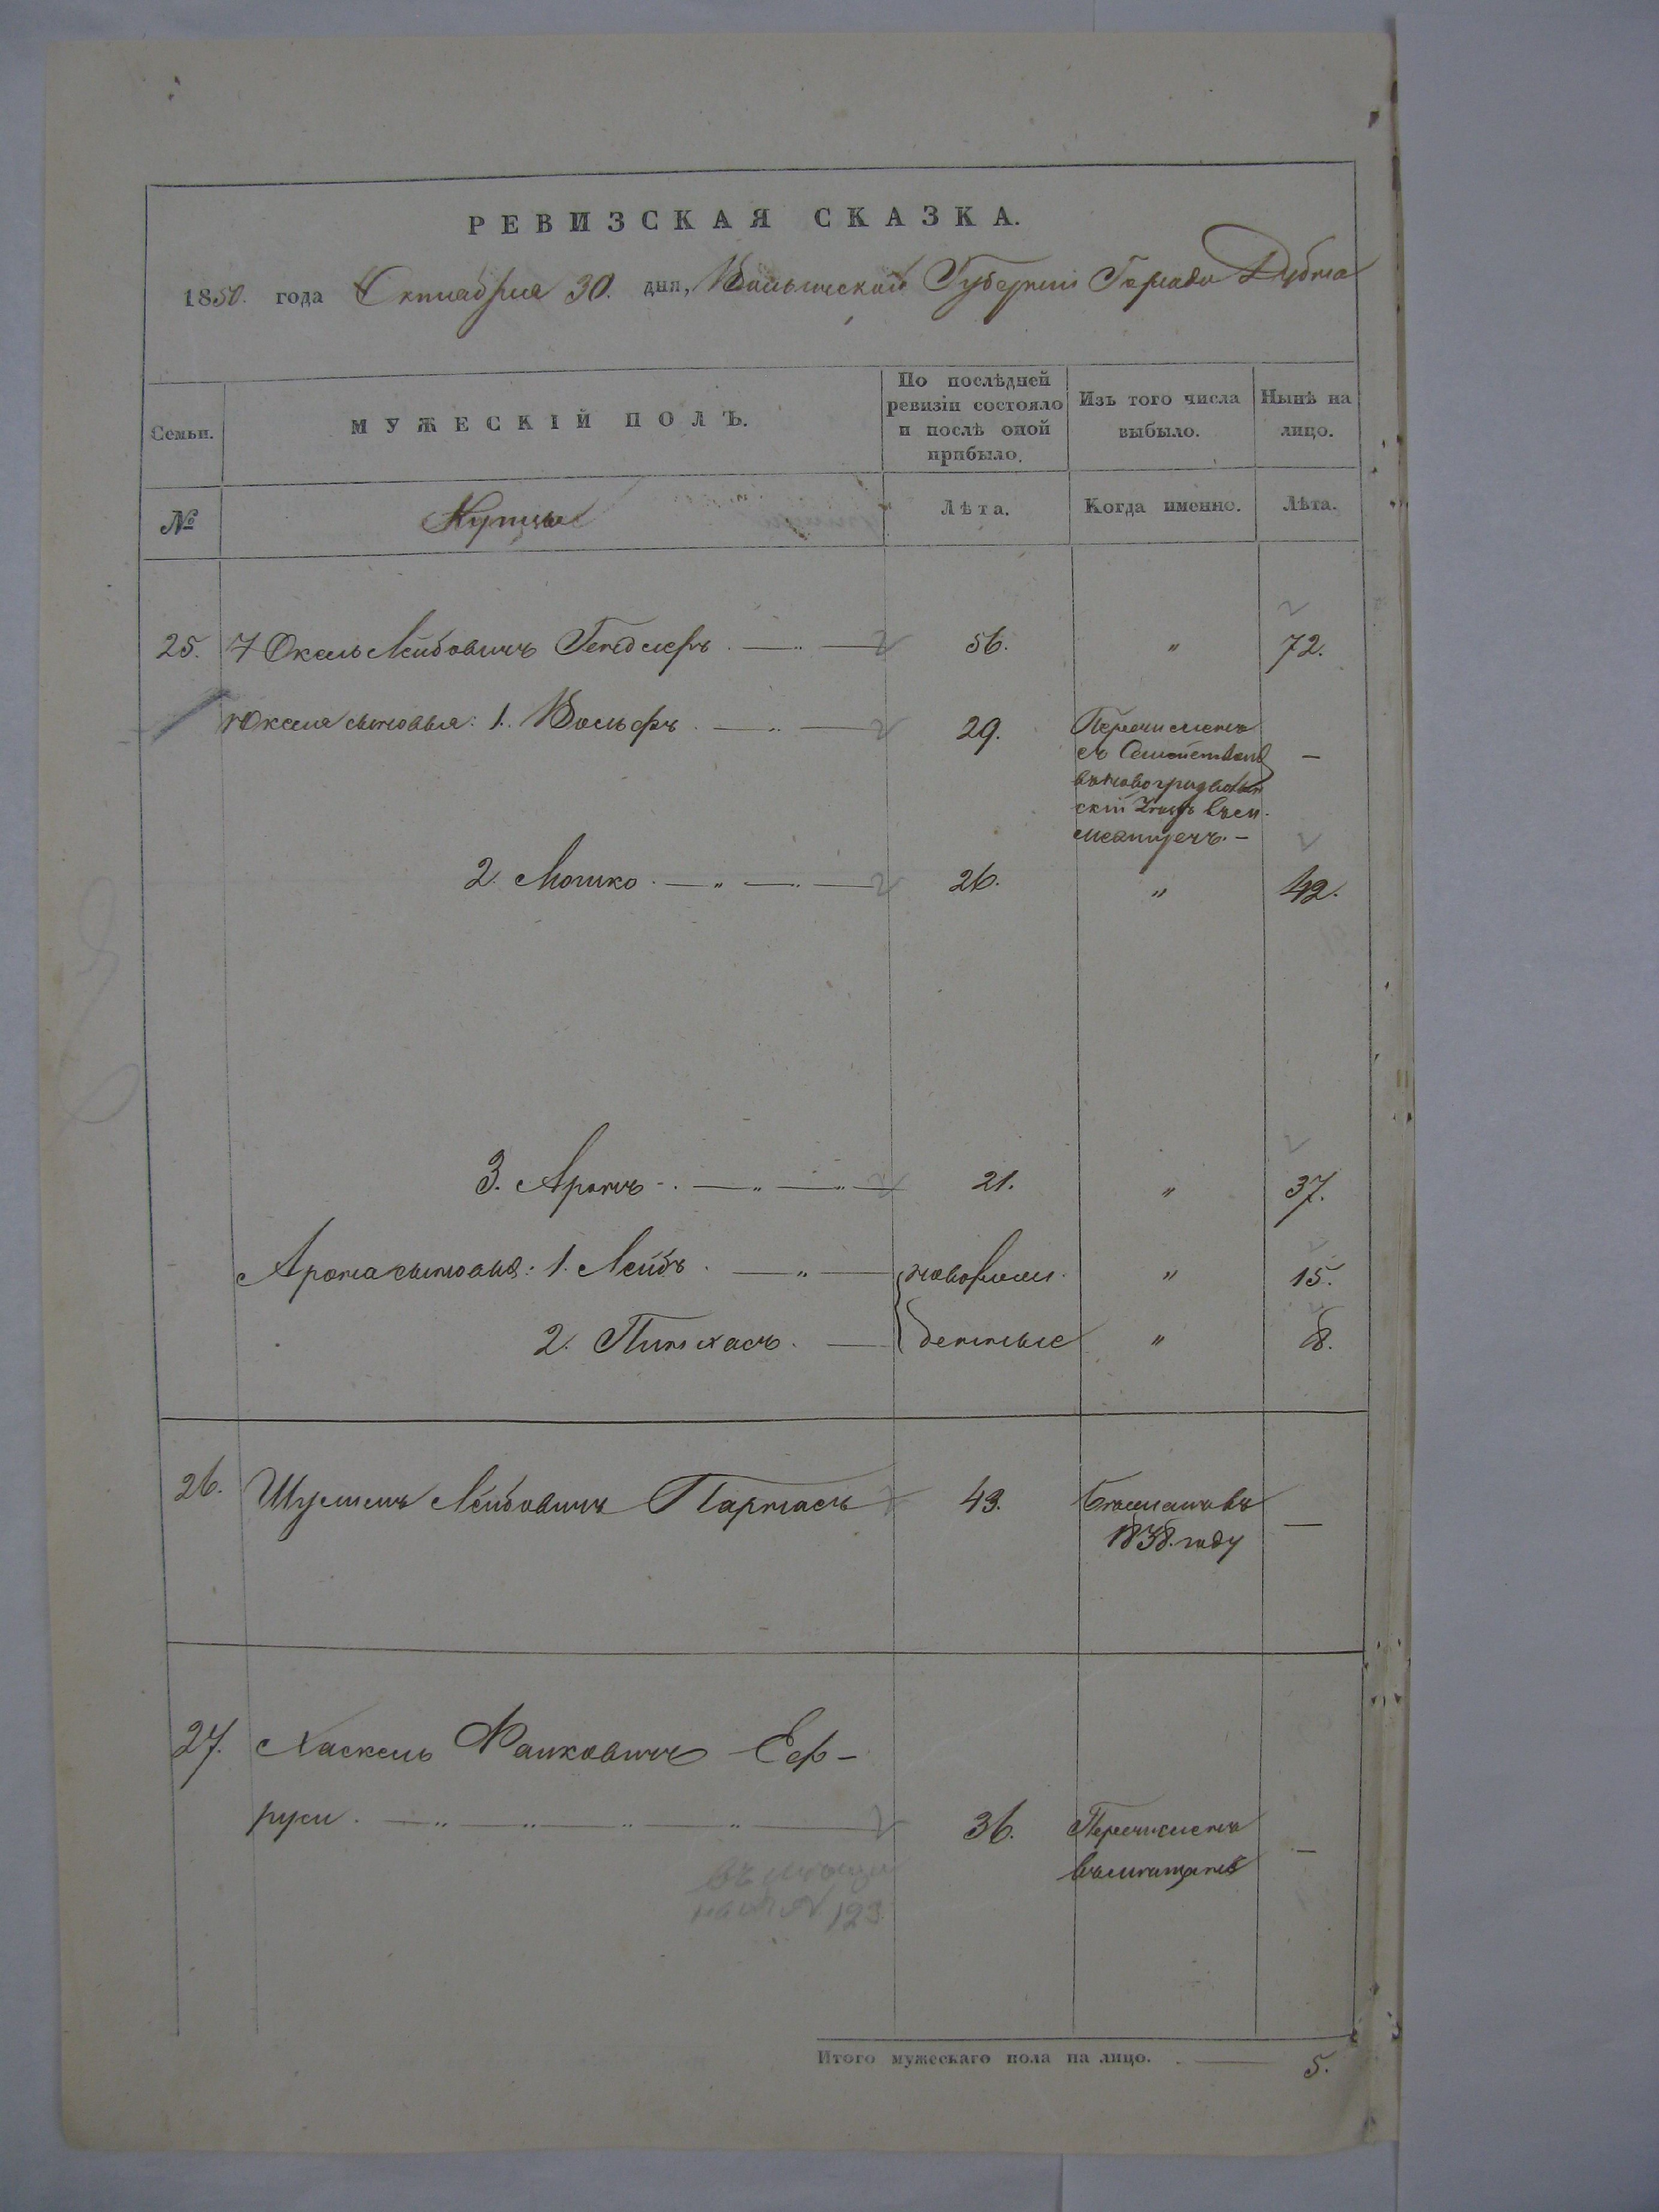 РЕВИЗСКАЯ СКАЗКА.
1850. года Октября 30. дня, Волынской Губерніи Города Дубна
Семьи. МУЖЕСКІЙ ПОЛЪ. По послѣдней ревизіи состояло и послѣ оной прибыло. Изъ того числа выбыло. Нынѣ на лицо.
№ Купцы Лѣта. Когда именно. Лѣта.
25. Юкель Лейбовичъ 56. " 72.
Юкеля сыновья: 1. Вольфъ 29. Перечисленъ —
съ Семействомъ
въ Новоградволын
скій
2. Мошко 26. " 42.
3. Аронъ 21. " 37.
Арона сыновья: 1. Лейбъ новорож " 15.
2. Пинхасъ денные " 8.
26. Шулимъ Лейбовичъ 43. въ —
1838. году
27. Хаскель Файковичъ Еф-
руси 36. Перечисленъ —
въ мещане
№ 123
Итого мужескаго пола на лицо. 5.